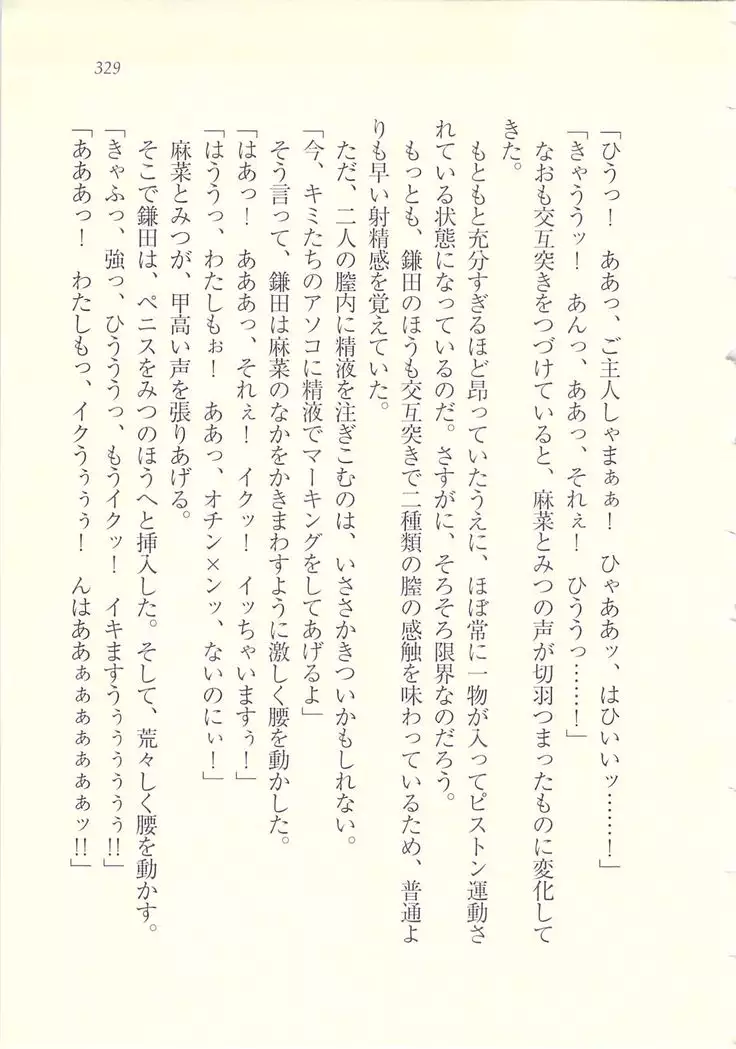 329
「ひうっ!　ああっ、ご主人しゃまぁぁ!　ひゃああッ、はひいいッ……!」
「きゃううッ!　あんっ、ああっ、それぇ!　ひううっ……!」
なおも交互突きをつづけていると、麻菜とみつの声が切羽つまったものに変化して
きた。
もともと充分すぎるほど昂っていたうえに、ほぼ常に一物が入ってピストン運動さ
れている状態になっているのだ。さすがに、そろそろ限界なのだろう。
もっとも、鎌田のほうも交互突きで二種類の膣の感触を味わっているため、普通よ
りも早い射精感を覚えていた。
ただ、二人の膣内に精液を注ぎこむのは、いささかきついかもしれない。
「今、キミたちのアソコに精液でマーキングをしてあげるよ」
そう言って、鎌田は麻菜のなかをかきまわすように激しく腰を動かした。
「はあっ!　あああっ、それぇ!　イクッ!　イッちゃいますぅ!」
「はううっ、わたしもぉ!　ああっ、オチン×ンッ、ないのにぃ!」
麻菜とみつが、甲高い声を張りあげる。
そこで鎌田は、ペニスをみつのほうへと挿入した。そして、荒々しく腰を動かす。
「きゃふっ、強っ、ひううっ、もうイクッ!　イキますうぅぅぅぅぅ!!」
「あああっ!　わたしもっ、イクうぅぅぅ!　んはああぁぁぁぁぁぁッ!!」